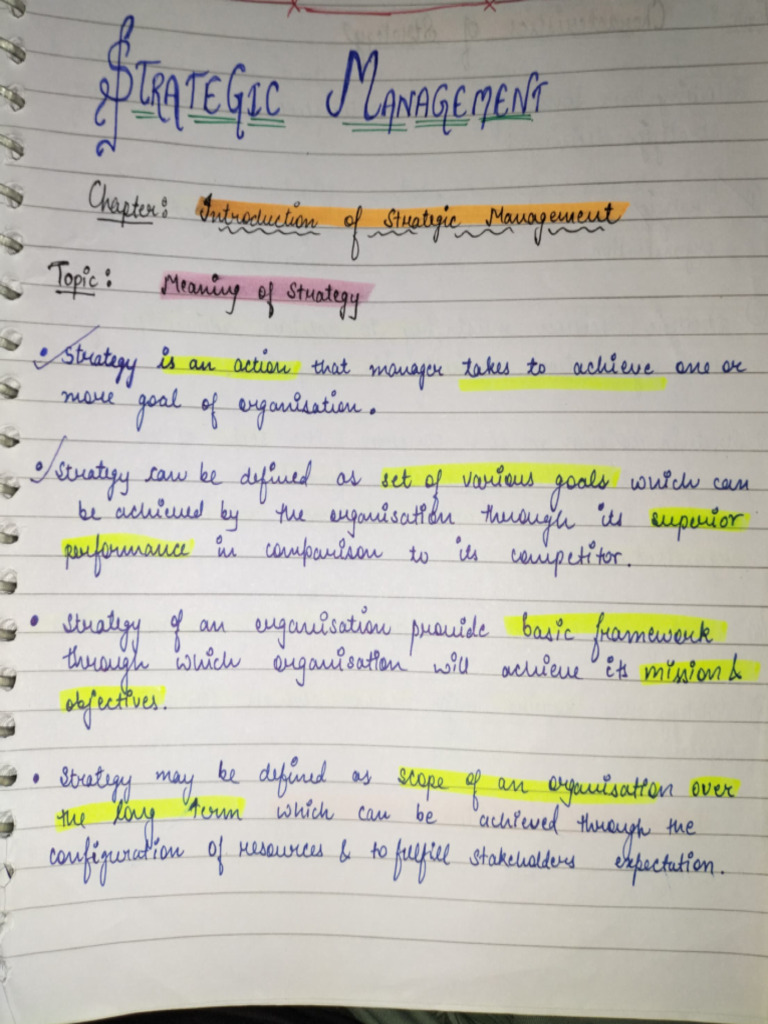 STRATEGIC MANAGEMENT
Chapter: Introduction of Strategic Management
Topic: Meaning of Strategy
• Strategy is an action that manager takes to achieve one or
more goal of organisation.
• Strategy can be defined as set of various goals which can
be achieved by the organisation through its superior
performance in comparison to its competitor.
• Strategy of an organisation provide basic framework
through which organisation will achieve its mission &
objectives.
• Strategy may be defined as scope of an organisation over
the long term which can be achieved through the
configuration of resources & to fulfill stakeholders expectation.